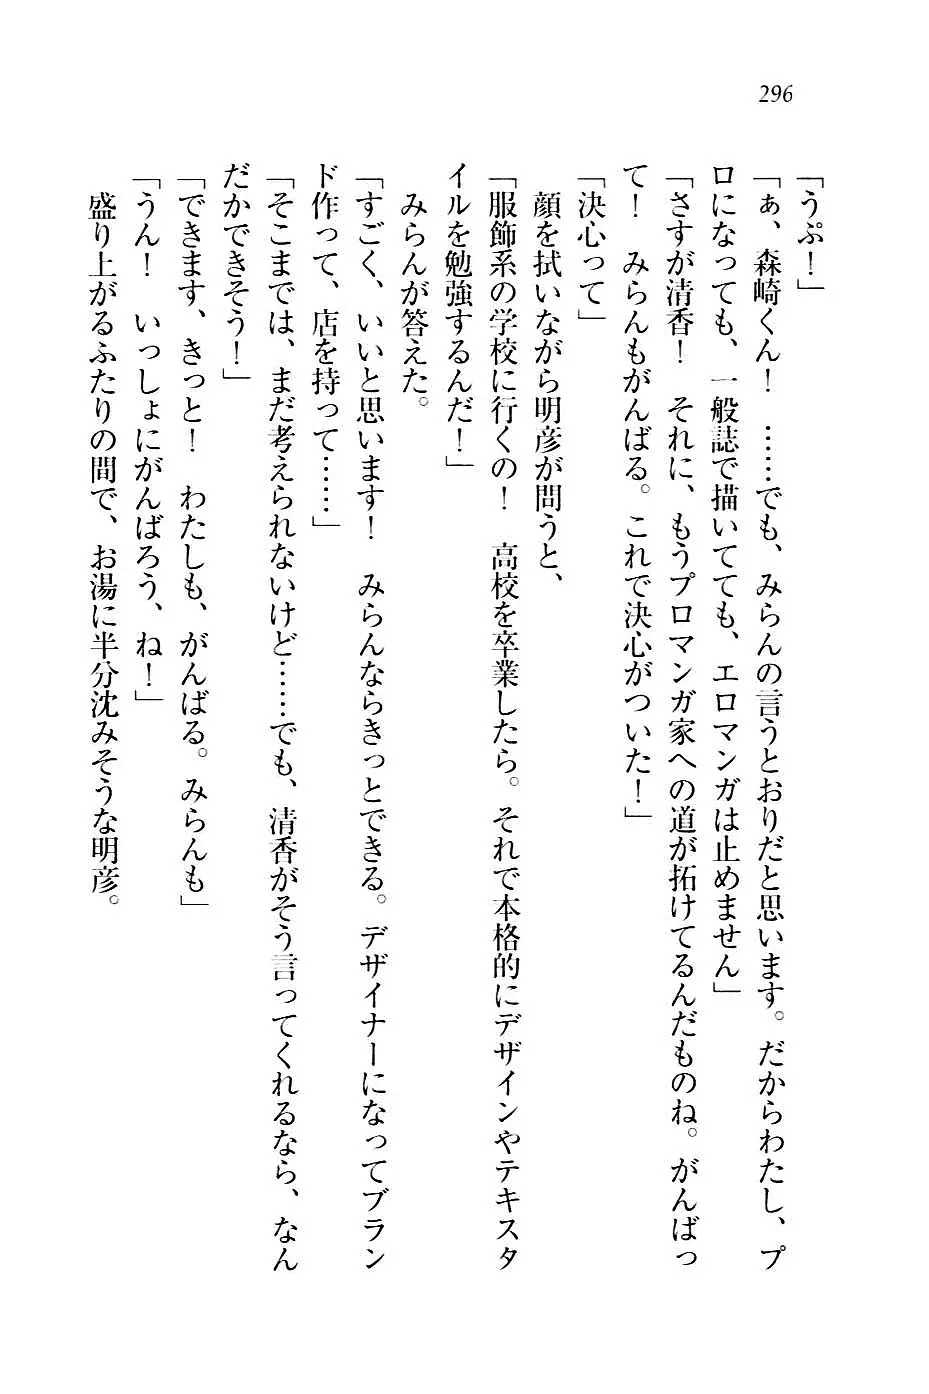 296
「うぷ！」
「ぁ、森崎くん！　……でも、みらんの言うとおりだと思います。だからわたし、プ
ロになっても、一般誌で描いてても、エロマンガは止めません」
「さすが清香！　それに、もうプロマンガ家への道が拓けてるんだものね。がんばっ
て！　みらんもがんばる。これで決心がついた！」
「決心って」
　顔を拭いながら明彦が問うと、
「服飾系の学校に行くの！　高校を卒業したら。それで本格的にデザインやテキスタ
イルを勉強するんだ！」
　みらんが答えた。
「すごく、いいと思います！　みらんならきっとできる。デザイナーになってブラン
ド作って、店を持って……」
「そこまでは、まだ考えられないけど……でも、清香がそう言ってくれるなら、なん
だかできそう！」
「できます、きっと！　わたしも、がんばる。みらんも」
「うん！　いっしょにがんばろう、ね！」
　盛り上がるふたりの間で、お湯に半分沈みそうな明彦。